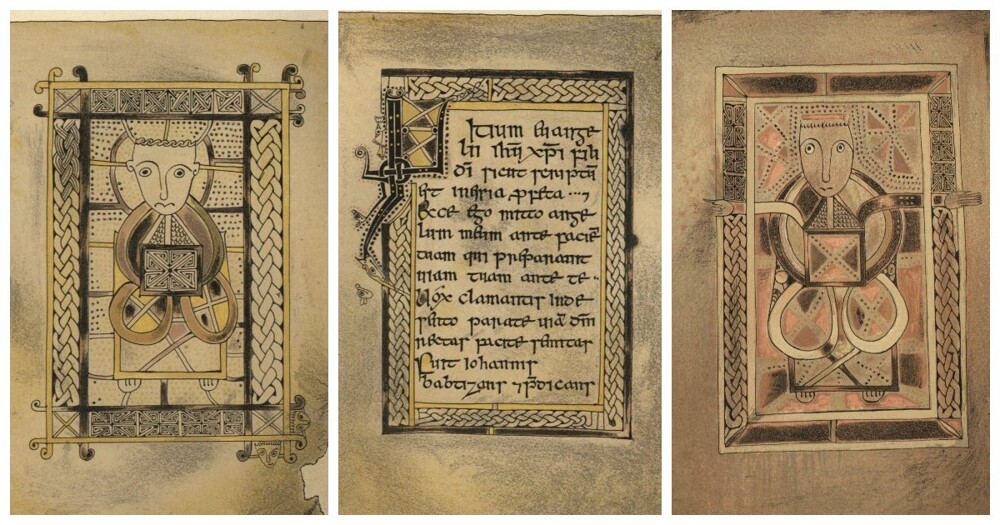 Initium euange
lii ihū xpī filii
dī sicut scriptū
est in isaia ꝓfeta
Ecce ego mitto ange
lum meum ante faciē
tuam qui preparauit
uiam tuam ante te
Uox clamantis inde
serto parate uiā dnī
rectas facite semitas
Fuit iohannis
babtizans ⁊ p̄dicans